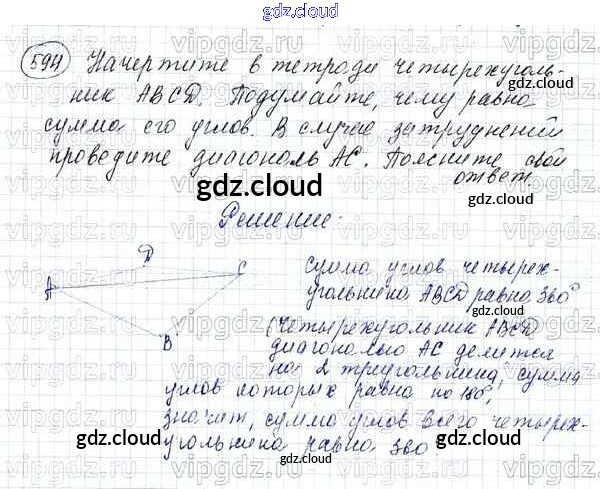 gdz.cloud
594 Начертите в тетради четырехуголь-
ник ABCD. Подумайте, чему равна
сумма его углов. В случае затруднений
проведите диагональ AC. Поясните свой
ответ.
gdz.cloud
Решение:
D
A
C
B
сумма углов четырех-
угольника ABCD равна 360°
(четырехугольник ABCD
диагональю AC делится
на 2 треугольника, сумма
углов которых равна по 180°,
значит, сумма углов всего четырех-
угольника равна 360
gdz.cloud